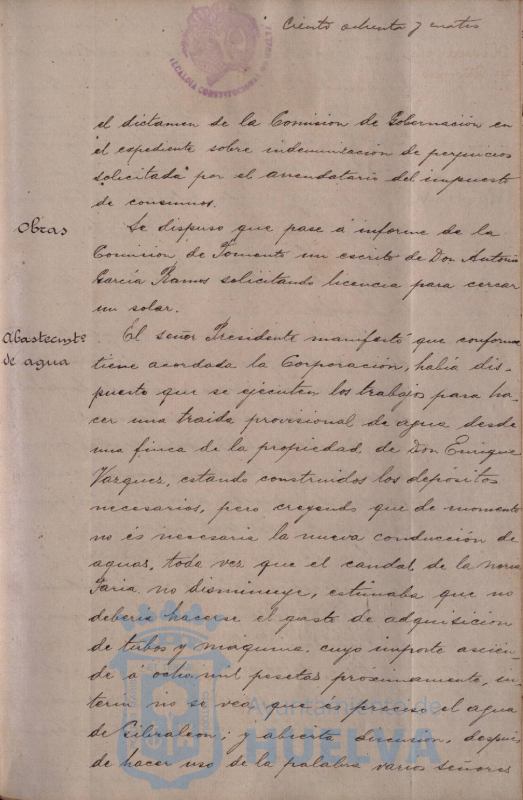 Ciento ochenta y cuatro
ALCALDIA CONSTITUCIONAL
el dictamen de la Comision de Gobernacion en
el espediente sobre indemnización de perjuicios
solicitada por el arrendatario del impuesto
de consumos.
Obras
Se dispuso que pase á informe de la
Comision de Fomento un escrito de Don Antonio
García Ramos solicitando licencia para cercar
un solar.
Abastecimtº
de agua
El señor Presidente manifestó que conforme
tiene acordada la Corporación, había dis-
puesto que se ejecuten los trabajos para ha-
cer una traida provisional de agua desde
una finca de la propiedad de Don Enrique
Vazquez, estando construidos los depósitos
necesarios, pero creyendo que de momento
no és necesaria la nueva conducción de
aguas, toda vez que el caudal de la noria
Faria no disminuye, estimaba que no
deberia hacerse el gasto de adquisicion
de tubos y máquina, cuyo importe ascien-
de á ocho mil pesetas próximamente, in-
terin no se vea que és preciso el agua
de Gibraleon; y abierta discusion, después
de hacer uso de la palabra varios señores
Ayuntamiento de
HUELVA